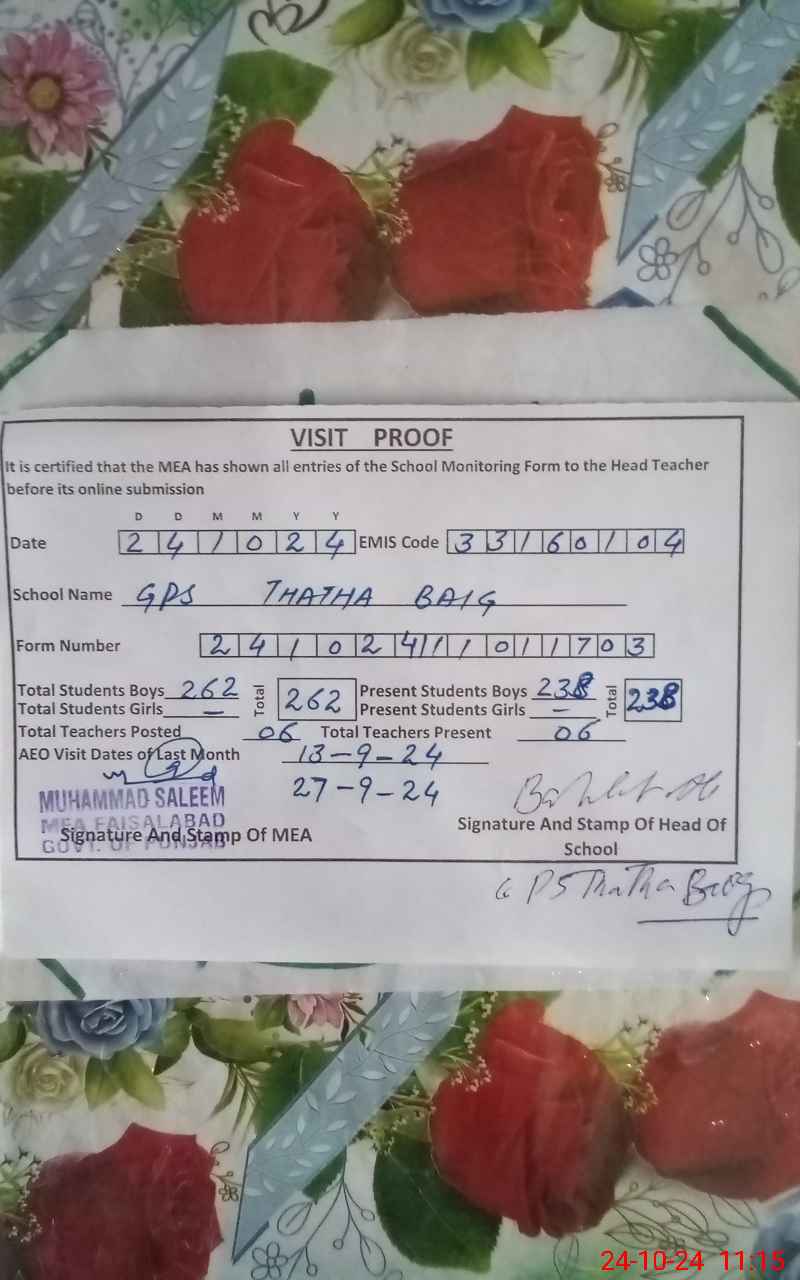 VISIT PROOF
It is certified that the MEA has shown all entries of the School Monitoring Form to the Head Teacher
before its online submission
D D M M Y Y
Date 2 4 1 0 2 4 EMIS Code 3 3 1 6 0 1 0 4
School Name GPS THATHA BAIG
Form Number 2 4 1 0 2 4 1 1 0 1 1 7 0 3
Total Students Boys 262 Total 262 Present Students Boys 238 Total 238
Total Students Girls — Present Students Girls —
Total Teachers Posted 06 Total Teachers Present 06
AEO Visit Dates of Last Month 13-9-24
27-9-24
MUHAMMAD SALEEM
MEA FAISALABAD
GOVT. OF PUNJAB
Signature And Stamp Of MEA
Signature And Stamp Of Head Of
School
G P S Thatha Baig
24-10-24 11:15